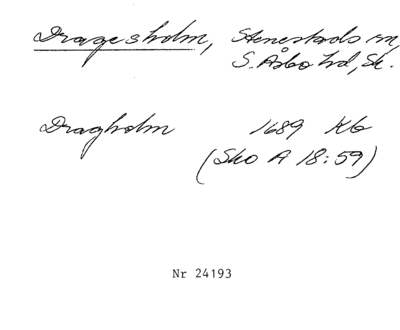 Dragesholm, Stenestads sn,
S. Åsbo hd, Sk.
Dragholm 1689 Kb
(Sko A 18:59)
Nr 24193